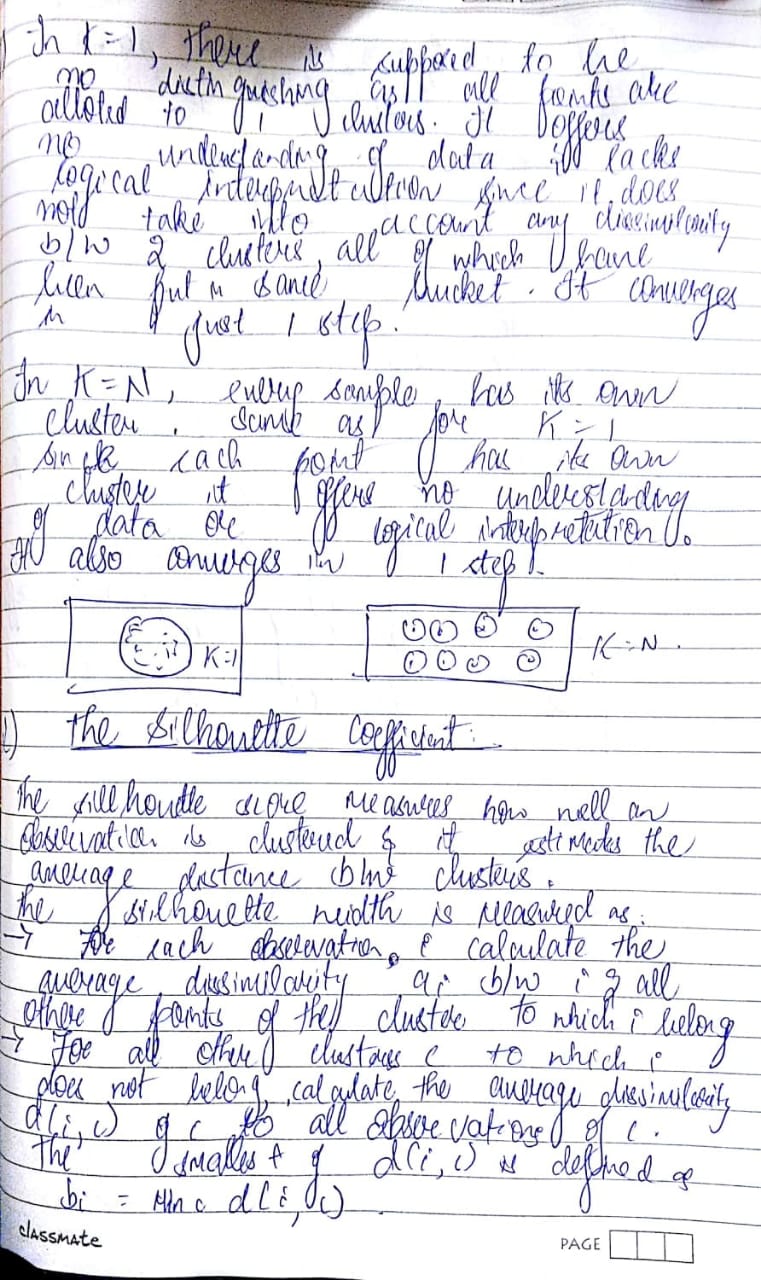 In K=1, there is supposed to be
no distinguishing as all points are
alloted to 1 clusters. It offers
no understanding of data lacks
logical interpretation since it does
not take into account any dissimilarity
b/w 2 clusters, all of which have
been put in same bucket. It converges
in just 1 step.
In K=N, every sample has its own
cluster. Same as for K=1
since each point has its own
cluster it offers no understanding
of data or logical interpretation.
It also converges in 1 step.
K=1
K=N.
The Silhouette Coefficient:
The sillhoutte score measures how well an
observation is clustered & it estimates the
average distance b/w clusters.
The silhouette width is measured as:
→ For each observation, i calculate the
average dissimilarity ai b/w i & all
other points of the cluster to which i belong
→ For all other clusters c to which i
does not belong, calculate the average dissimilarity
d(i, c) of c to all observations of c.
The smallest of d(i, c) is defined as
bi = Min c d(i, c)
classmate
PAGE